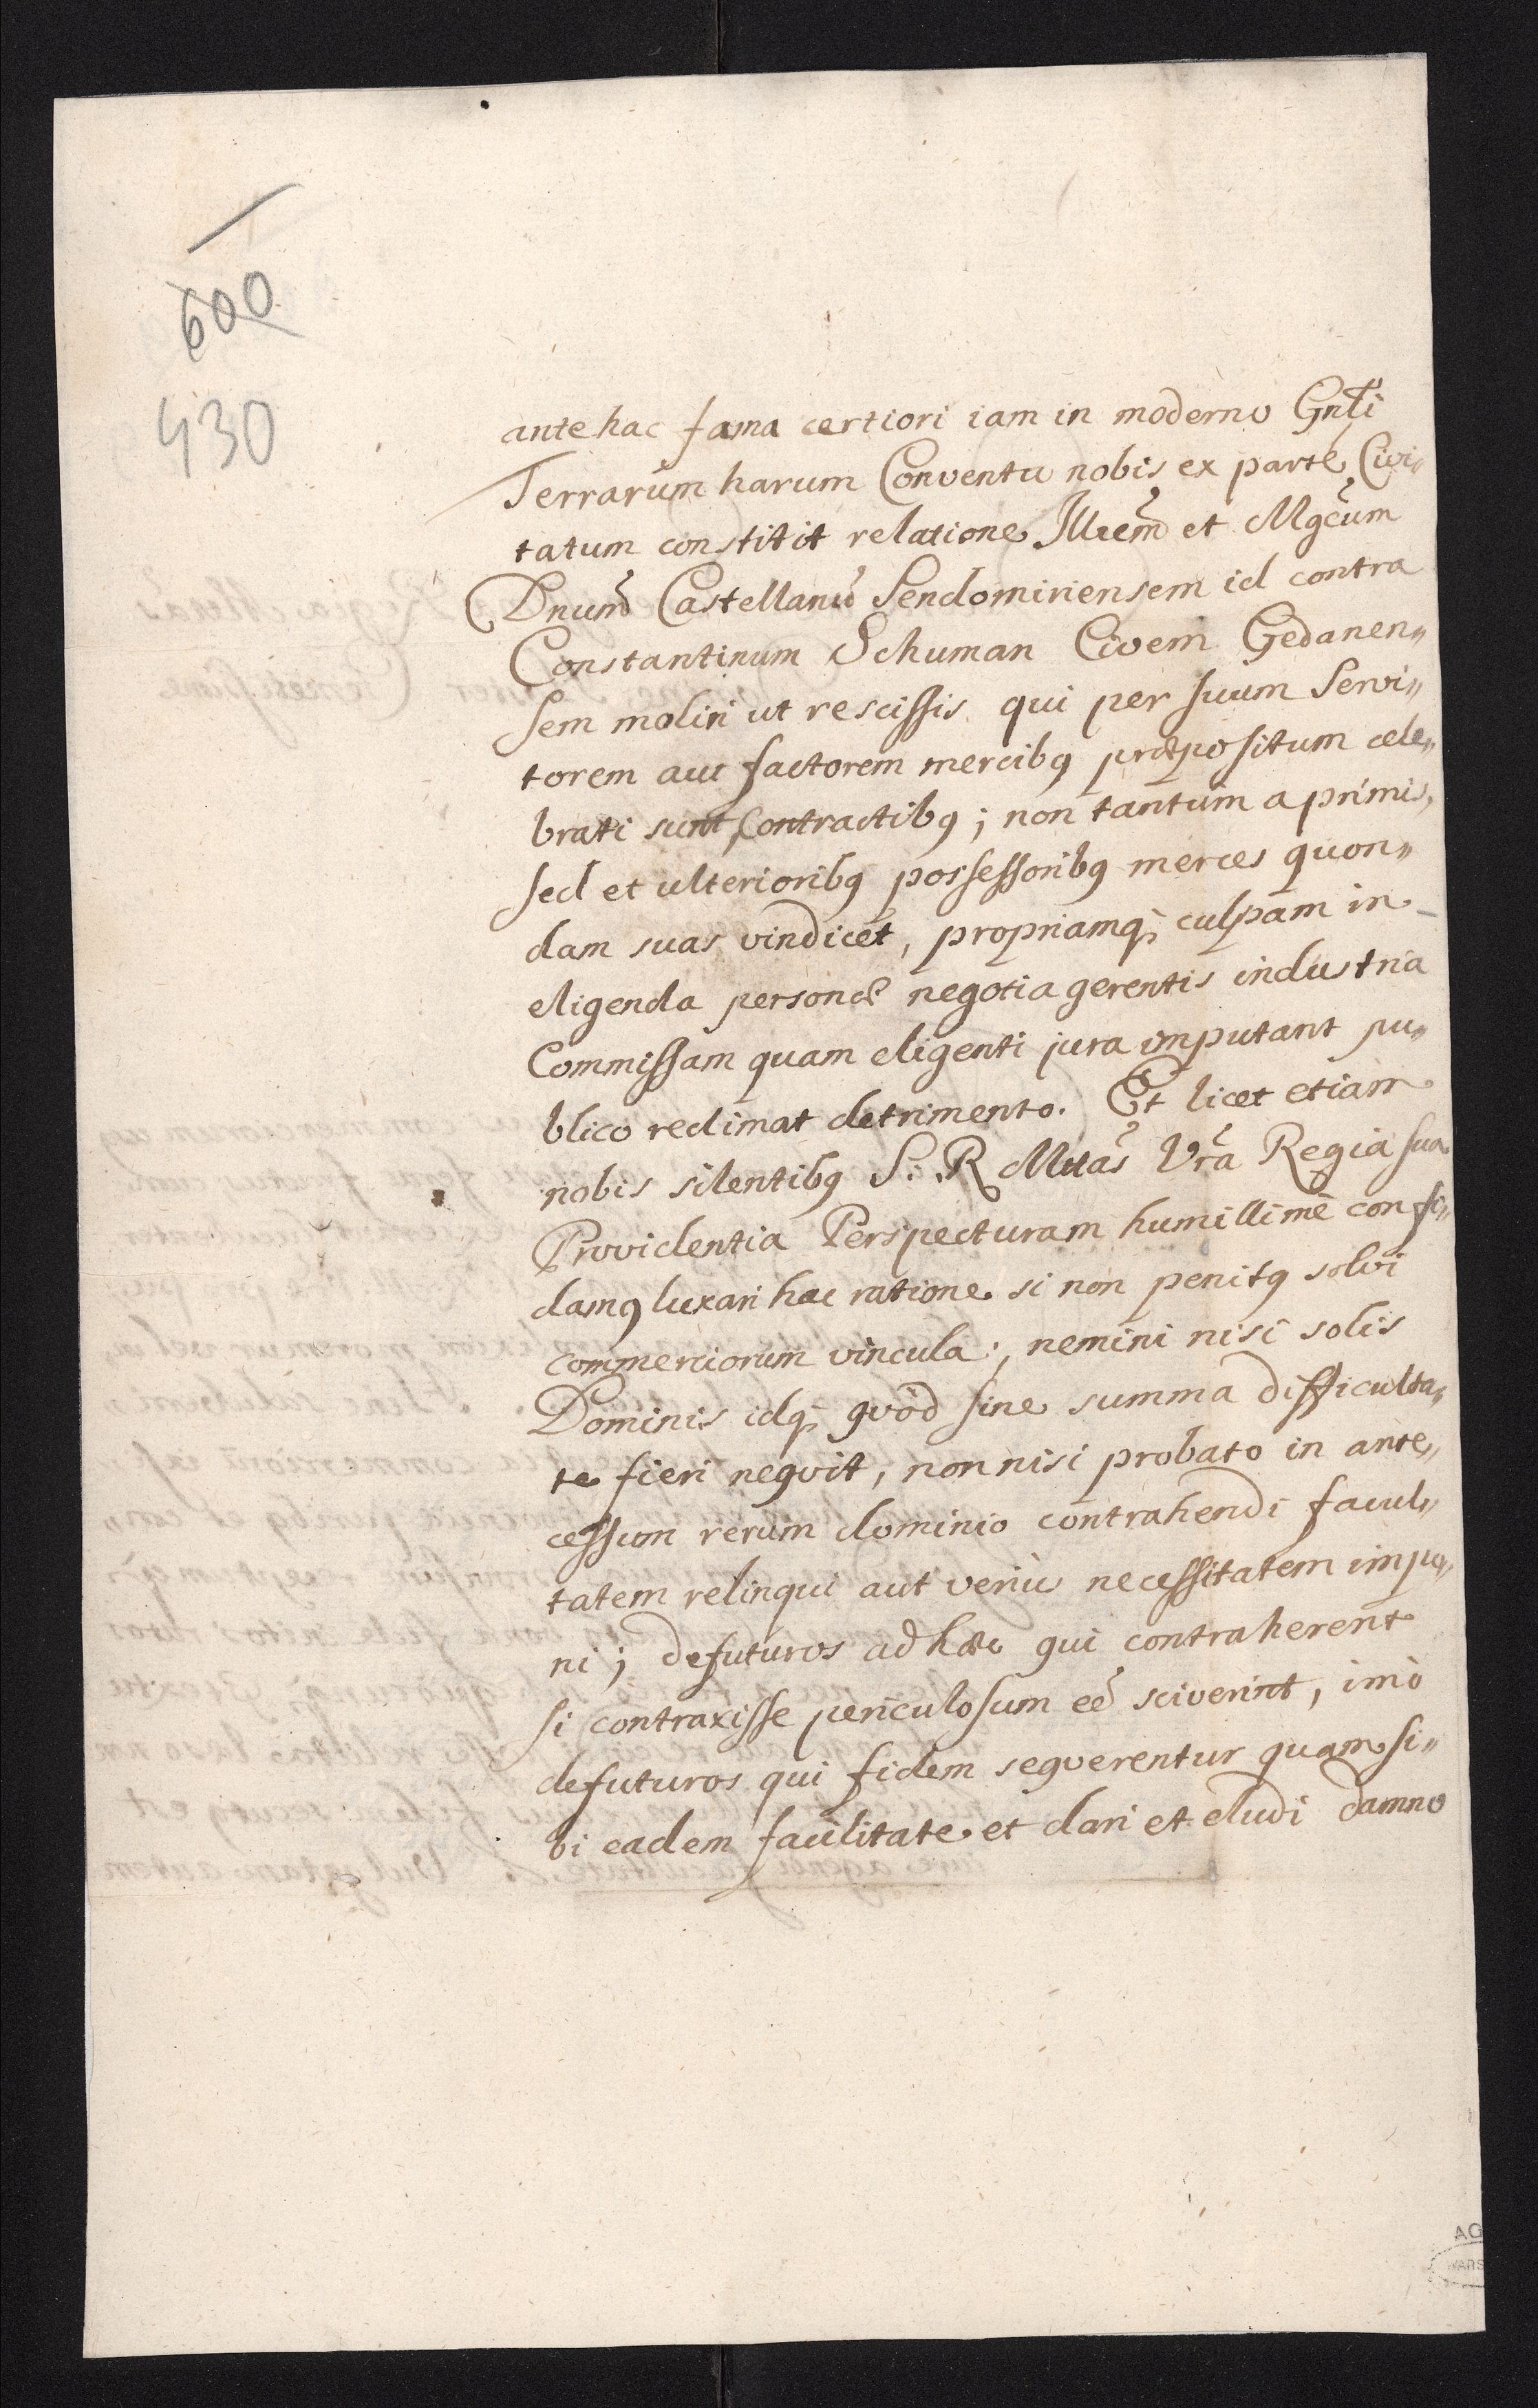 600
430
antehac fama certiori iam in moderno Gnl̃i
Terrarum harum Conventu nobis ex parte Civi„
tatum constitit relatione Illrem̃ et Mgcũm
Dnum̃ Castellanũ Sendomiriensem id contra
Constantinum Schuman Civem Gedanen„
sem moliri ut rescissis qui per suum Servi„
torem aut factorem mercibꝫ præpositum cele„
brati sunt Contractibꝫ; non tantum a primis,
sed et ulterioribꝫ possessoribꝫ merces quon„
dam suas vindicet, propriamqꝫ culpam in
eligenda personæ negotia gerentis industria
Commissam quam eligenti jura imputant pu„
blico redimat detrimento. Et licet etiam
nobis silentibꝫ S. R Mttas̃ Vrã Regia sua
Providentia Perspecturam humillimè confi„
damꝫ luxari hac ratione si non penitꝫ solvi
commerciorum vincula; nemini nisi solis
Dominis idqꝫ qvòd sine summa difficulta„
te fieri neqvit, nonnisi probato in ante„
cessum rerum dominio contrahendi facul„
tatem relinqui aut veriùs necessitatem impo„
ni; defuturos ad hæc qui contraherent
si contraxisse periculosum eẽ sciverint, imò
defuturos qui fidem seqverentur quam si„
bi eadem facilitate et dari et eludi damno
AG
WARS